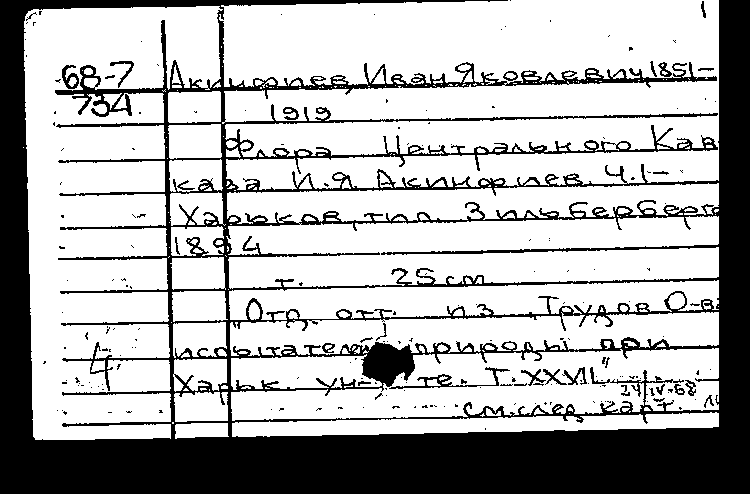 1
68-7 Акинфиев, Иван Яковлевич, 1851-
734 1919
Флора Центрального Кав
каза. И.Я. Акинфиев. Ч.1-
Харьков, тип. Зильберберга
1894
т. 25 см
"Отд. отт. из "Трудов О-ва
испытателей природы при
4 Харьк. ун-те. Т. XXVII"
24/IV-68
см. след. карт.